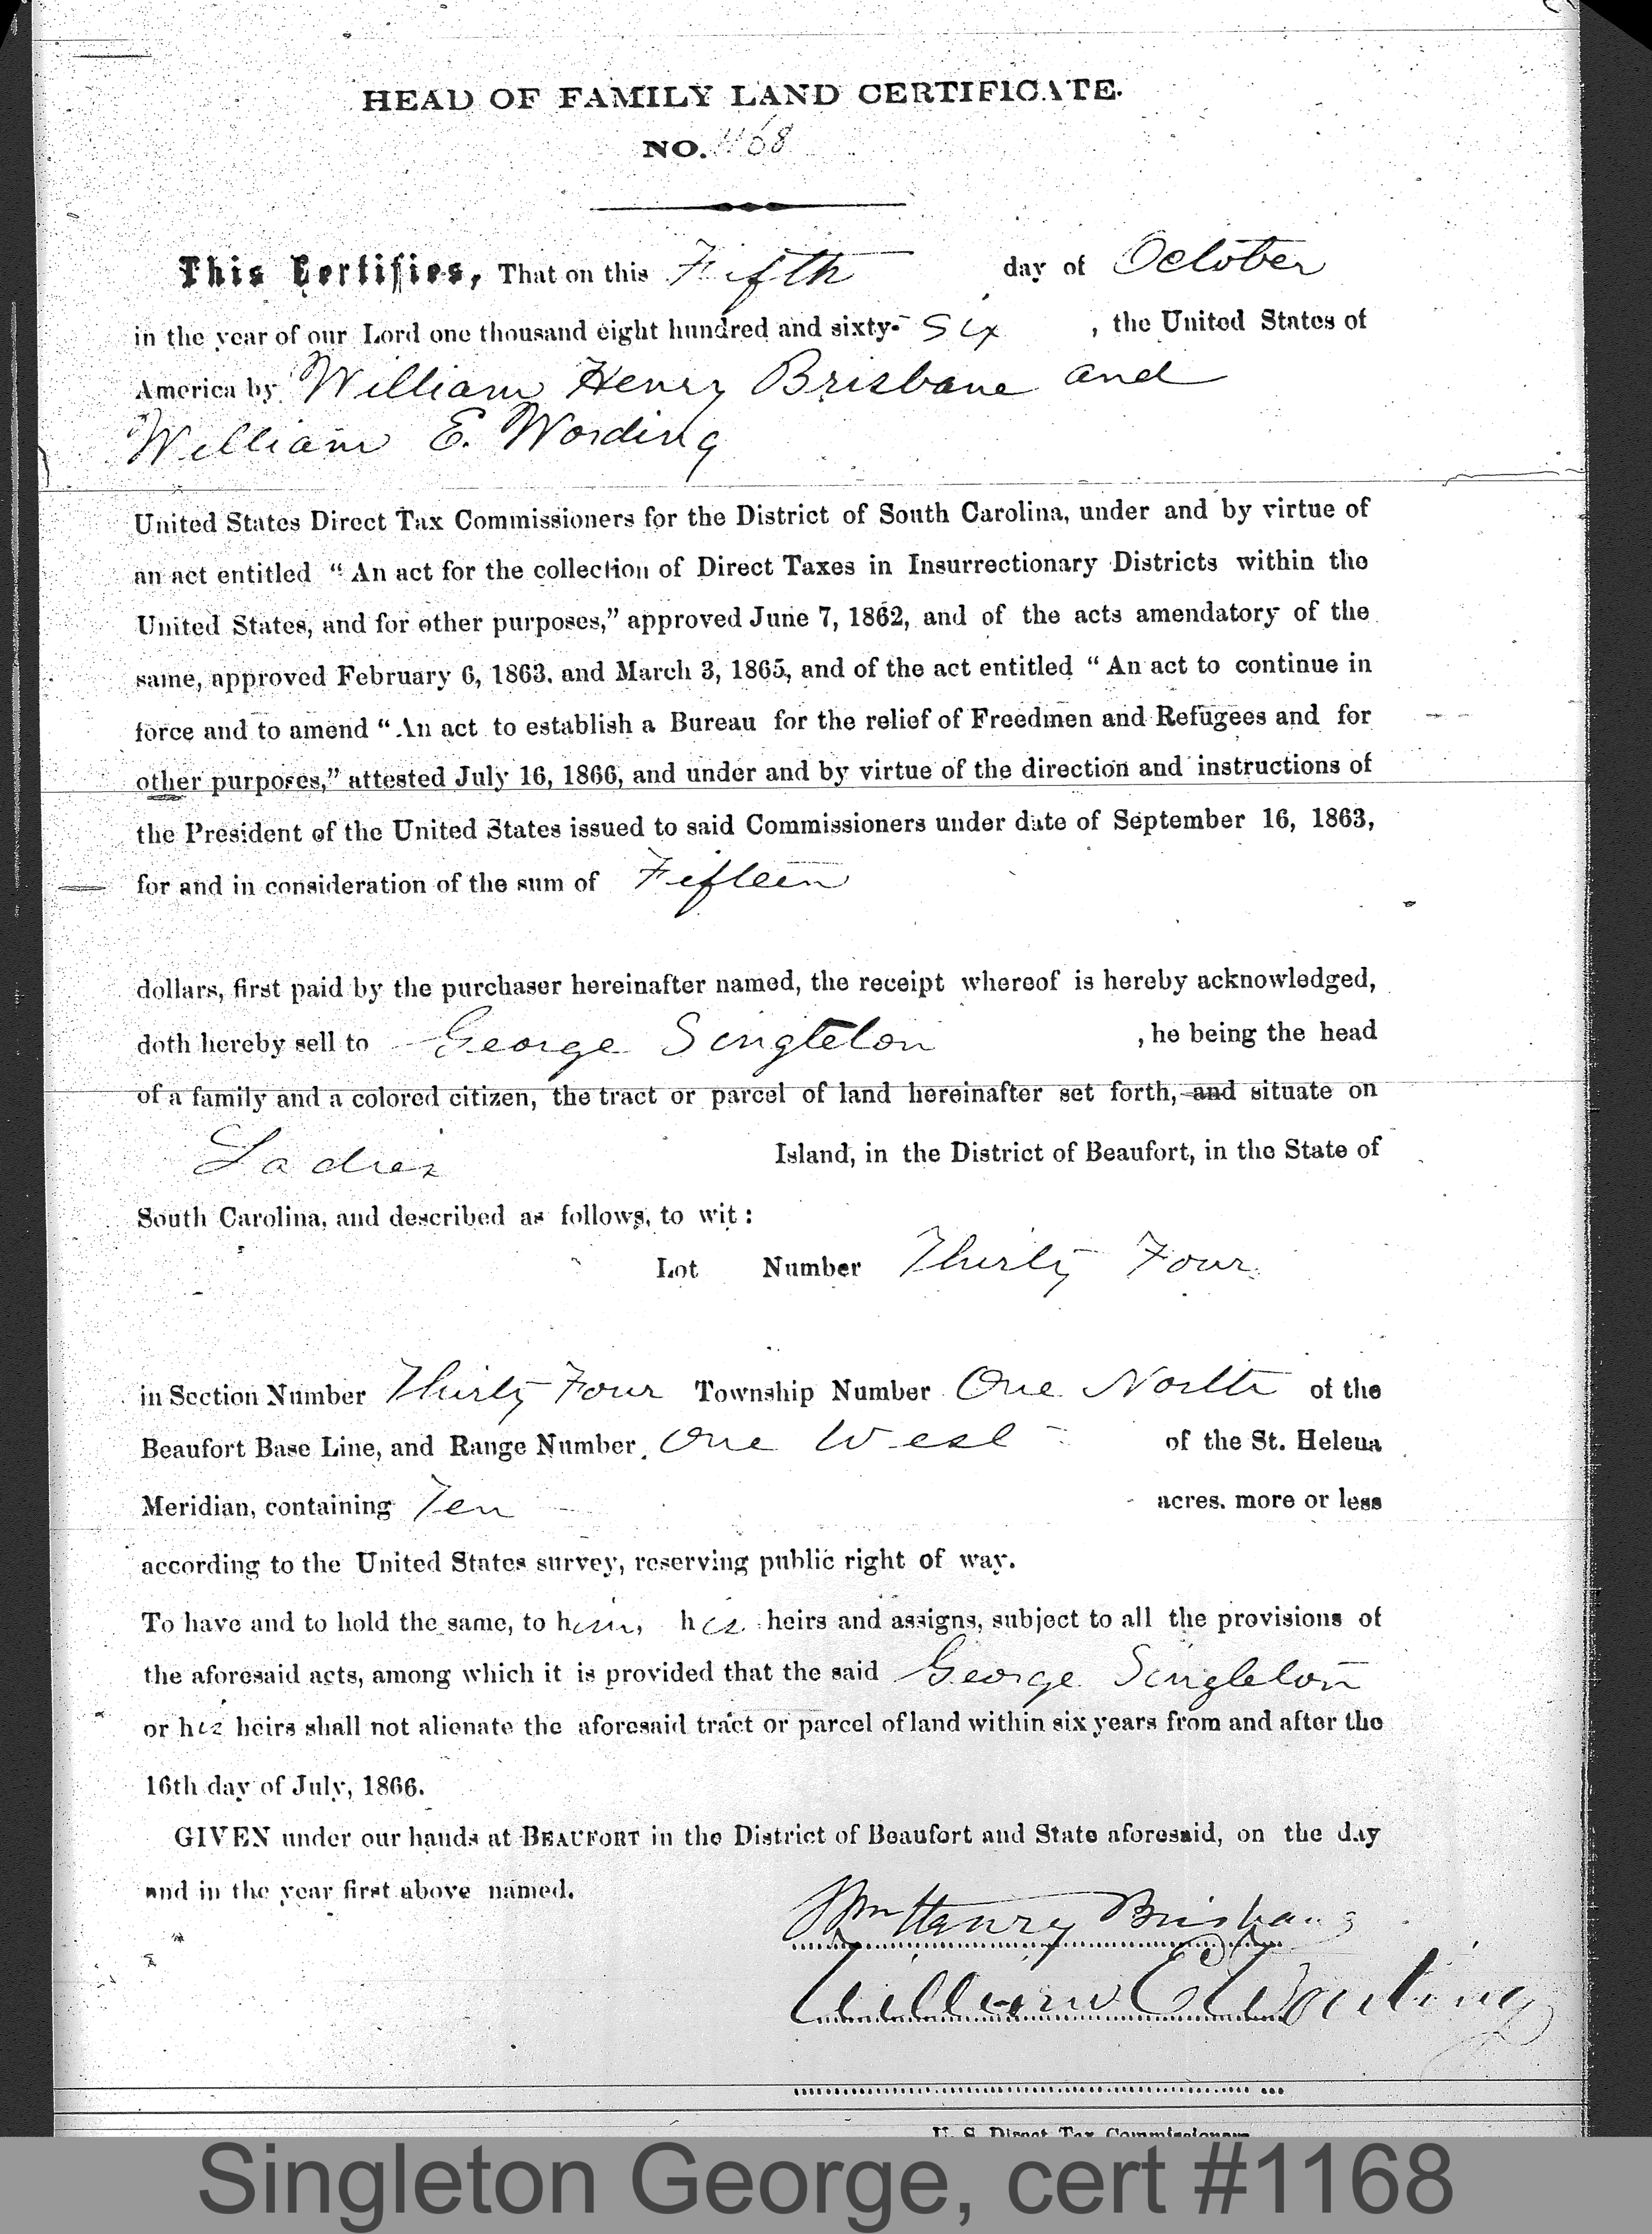 HEAD OF FAMILY LAND CERTIFICATE.
NO. 1168
This Certifies, That on this Fifth day of October
in the year of our Lord one thousand eight hundred and sixty- Six , the United States of
America by William Henry Brisbane and
William E. Wording
United States Direct Tax Commissioners for the District of South Carolina, under and by virtue of
an act entitled “ An act for the collection of Direct Taxes in Insurrectionary Districts within the
United States, and for other purposes,” approved June 7, 1862, and of the acts amendatory of the
same, approved February 6, 1863. and March 3, 1865, and of the act entitled “ An act to continue in
force and to amend “ An act to establish a Bureau for the relief of Freedmen and Refugees and for
other purposes,” attested July 16, 1866, and under and by virtue of the direction and instructions of
the President of the United States issued to said Commissioners under date of September 16, 1863,
for and in consideration of the sum of Fifteen
dollars, first paid by the purchaser hereinafter named, the receipt whereof is hereby acknowledged,
doth hereby sell to George Singleton , he being the head
of a family and a colored citizen, the tract or parcel of land hereinafter set forth, and situate on
Ladies Island, in the District of Beaufort, in the State of
South Carolina, and described as follows, to wit :
Lot Number Thirty Four
in Section Number Thirty Four Township Number One North of the
Beaufort Base Line, and Range Number One West of the St. Helena
Meridian, containing Ten acres. more or less
according to the United States survey, reserving public right of way.
To have and to hold the same, to him, his heirs and assigns, subject to all the provisions of
the aforesaid acts, among which it is provided that the said George Singleton
or his heirs shall not alienate the aforesaid tract or parcel of land within six years from and after the
16th day of July, 1866.
GIVEN under our hands at BEAUFORT in the District of Beaufort and State aforesaid, on the day
and in the year first above named.
Wm Henry Brisbane
William E Wording
U. S. Direct Tax Commissioners
Singleton George, cert #1168